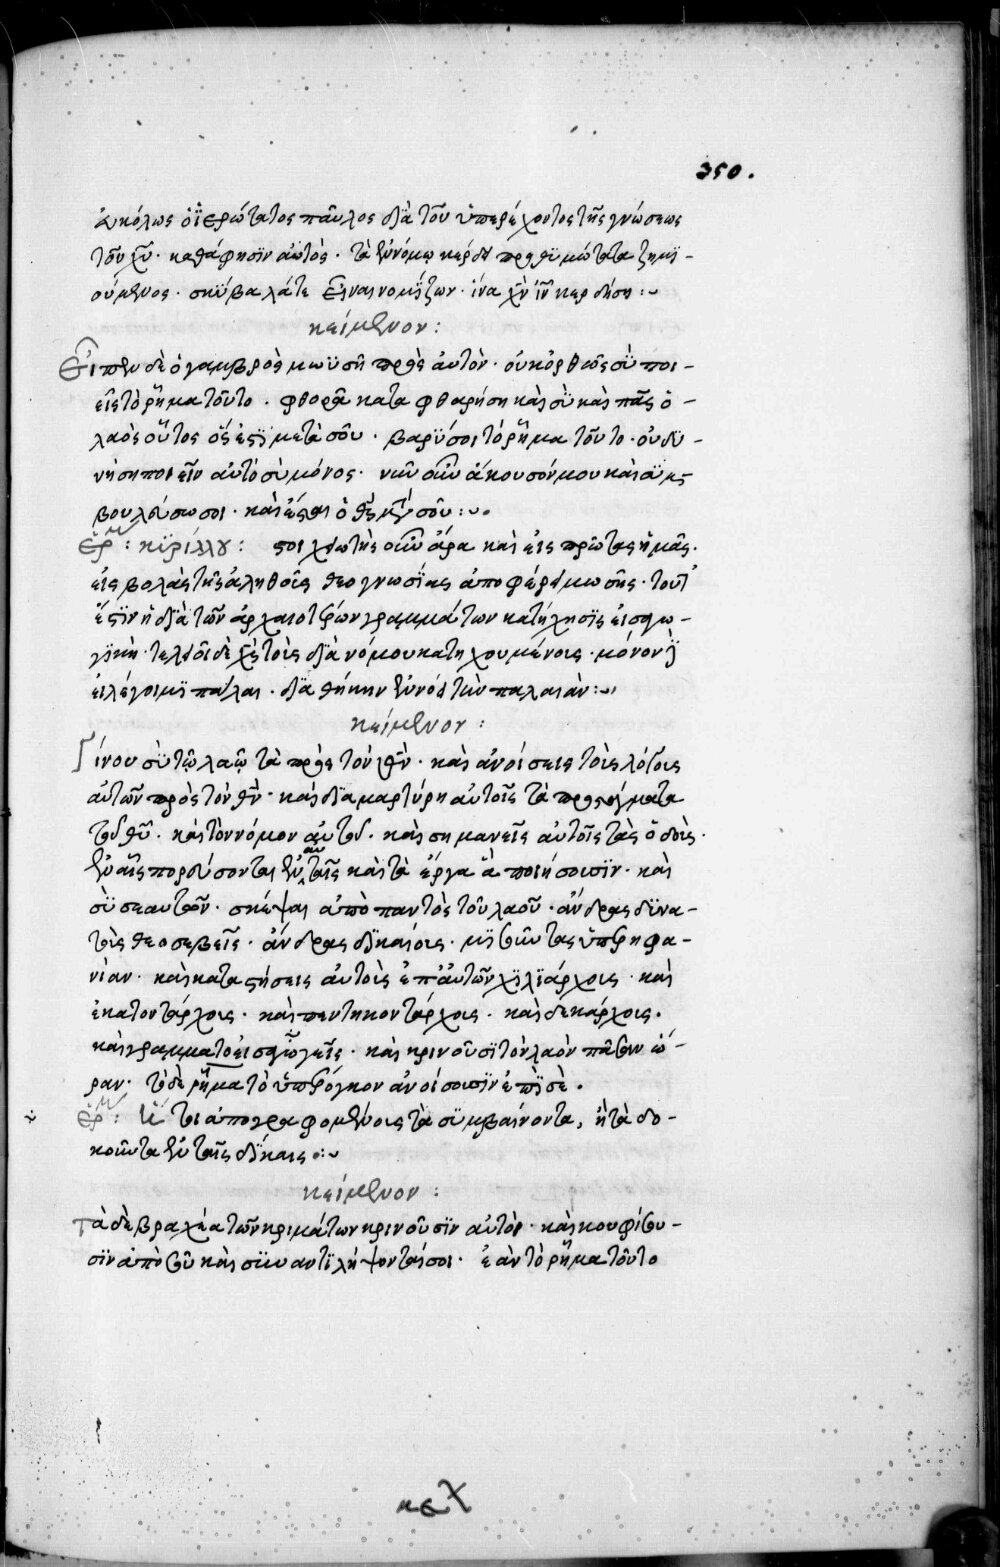 350.
εὐκόλως ὁ ἱερώτατος παῦλος διὰ τοῦ ὑπερέχοντος τῆς γνώσεως
τοῦ χυ̅· καθάφησιν αὐτὸς· τὰ ἐν νόμῳ κέρδη προθυμότατα ζημι-
ούμενος· σκύβαλά τε εἶναι νομίζων· ἵνα χν̅ ιν̅ κερδήση:~
κείμενον:
Εἶπεν δὲ ὁ γαμβρὸς μωυσῆ πρὸς αὐτὸν· οὐκ ὀρθῶς σὺ ποι-
εῖς τὸ ρῆμα τοῦτο. φθορᾶ καταφθαρήση καὶ σὺ καὶ πᾶς ὁ
λαὸς οὗτος ὅς ἐστι μετὰ σοῦ· βαρύ σοι τὸ ρῆμα τοῦτο· οὐ δυ-
νήση ποιεῖν αὐτὸ σὺ μόνος· νῦν οὖν ἄκουσόν μου καὶ συμ
βουλεύσω σοι· καὶ ἔσται ὁ θς̅ μετὰ σοῦ:~
ἑρμ: κυρίλλου: στοιχειωτὴς οὖν ἄρα καὶ εἰς πρώτας ἡμᾶς
εἰσβολὰς τῆς ἀληθοῦς θεογνωσίας ἀποφέρει μωσῆς· τοῦτ'
ἔστιν ἡ διὰ τῶν ἀρχαιοτέρων γραμμάτων κατήχησις εἰσαγω-
γικὴ· τελειοῖ δὲ χς̅ τοὺς διὰ νόμου κατηχουμένους· μόνον
εἰ λέγοιμι πάλαι· διαθήκην ἐν νόει τὴν παλαιάν:~
κείμενον:
Γίνου σὺ τῷ λαῷ τὰ πρὸς τὸν θν̅· καὶ ἀνοίσεις τοὺς λόγους
αὐτῶν πρὸς τὸν θν̅· καὶ διαμαρτύρη αὐτοῖς τὰ προστάγματα
τοῦ θυ̅· καὶ τὸν νόμον αὐτοῦ· καὶ σημανεῖς αὐτοῖς τὰς ὁδοὺς
ἐν αἷς πορεύσονται ἐν αὐταῖς καὶ τὰ ἔργα ἃ ποιήσουσιν· καὶ
σὺ σεαυτῶ· σκέψαι ἀπὸ παντὸς τοῦ λαοῦ· ἄνδρας δυνα-
τοὺς θεοσεβεῖς· ἄνδρας δικαίους· μισοῦντας ὑπερηφα-
νίαν· καὶ καταστήσεις αὐτοὺς ἐπ' αὐτῶν χιλιάρχους· καὶ
ἑκατοντάρχους· καὶ πεντηκοντάρχους· καὶ δεκάρχους.
καὶ γραμματοεισαγωγεῖς· καὶ κρινοῦσι τὸν λαὸν πᾶσαν ὥ-
ραν· τὸ δὲ ρῆμα τὸ ὑπέρογκον ἀνοίσουσιν ἐπὶ σὲ.
ἑρμ: τοι ἀπογραφομένους τὰ συμβαίνοντα, ἢ τὰ δο-
κοῦντα ἐν ταῖς δίκαις:~
κείμενον:
Τὰ δὲ βραχέα τῶν κριμάτων κρινοῦσιν αὐτοὶ· καὶ κουφιοῦ-
σιν ἀπὸ σοῦ καὶ συναντιλήψονταί σοι· ἐὰν τὸ ρῆμα τοῦτο